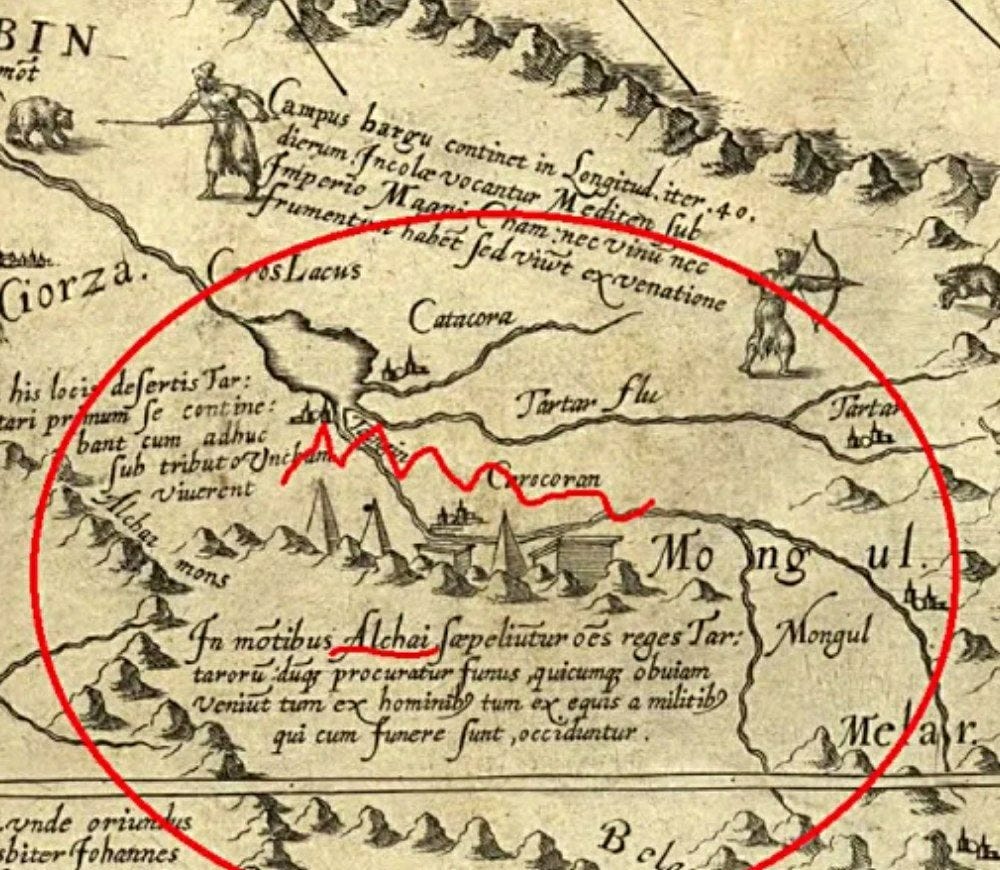 BIN
mōt
Campus bargu continet in Longitud. iter. 40.
dierum. Incolæ vocantur Mediten sub
Imperio Magni Cham: nec vinū nec
frumentum habēt sed viuūt ex venatione
Ciorza.
Lacus
Catacora
his locis desertis Tar:
tari primum se contine:
bant cum adhuc
sub tributo Vncham
viuerent
Tartar flu
Tartar
Corocoran
Alchai mons
Mongul.
In mōtibus Alchai sæpeliūtur oēs reges Tar:
tarorū dūq; procuratur funus, quicumq; obuiam
veniūt tum ex hominib9 tum ex equis a militib9
qui cum funere sunt, occiduntur.
Mongul
Melair.
vnde oriundus
sbiter Johannes
Bel